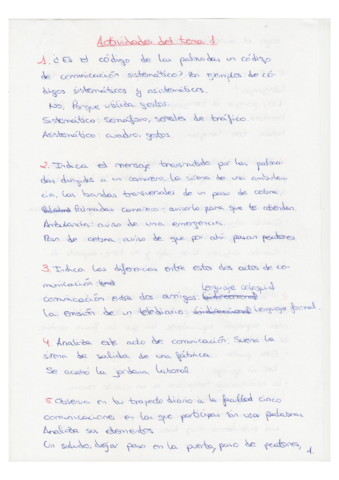 Actividades del tema 1
1. ¿Es el código de las palmadas un código
de comunicación sistemático? Pon ejemplos de có-
digos sistemáticos y asistemáticos.
No. Porque utiliza gestos.
Sistemático: semáforo, señales de tráfico
Asistemático: cuadro, gestos.
2. Indica el mensaje transmitido por las palma-
das dirigidas a un camarero, la sirena de una ambulan-
cia, las bandas transversales de un paso de cebra.
Palmadas camarero: avisarlo para que te atiendan.
Ambulancia: aviso de una emergencia.
Paso de cebra: aviso de que por ahí pasan peatones
3. Indica las diferencias entre estos dos actos de co-
municación
Lenguaje coloquial
comunicación entre dos amigos: bidireccional
la emisión de un telediario: unidireccional Lenguaje formal.
4. Analiza este acto de comunicación: Suena la
sirena de salida de una fábrica.
Se acabó la jornada laboral
5. Observa en tu trayecto diario a la facultad cinco
comunicaciones en las que participas sin usar palabras
Analiza sus elementos
Un saludo, dejar paso en la puerta, paso de peatones,
1.